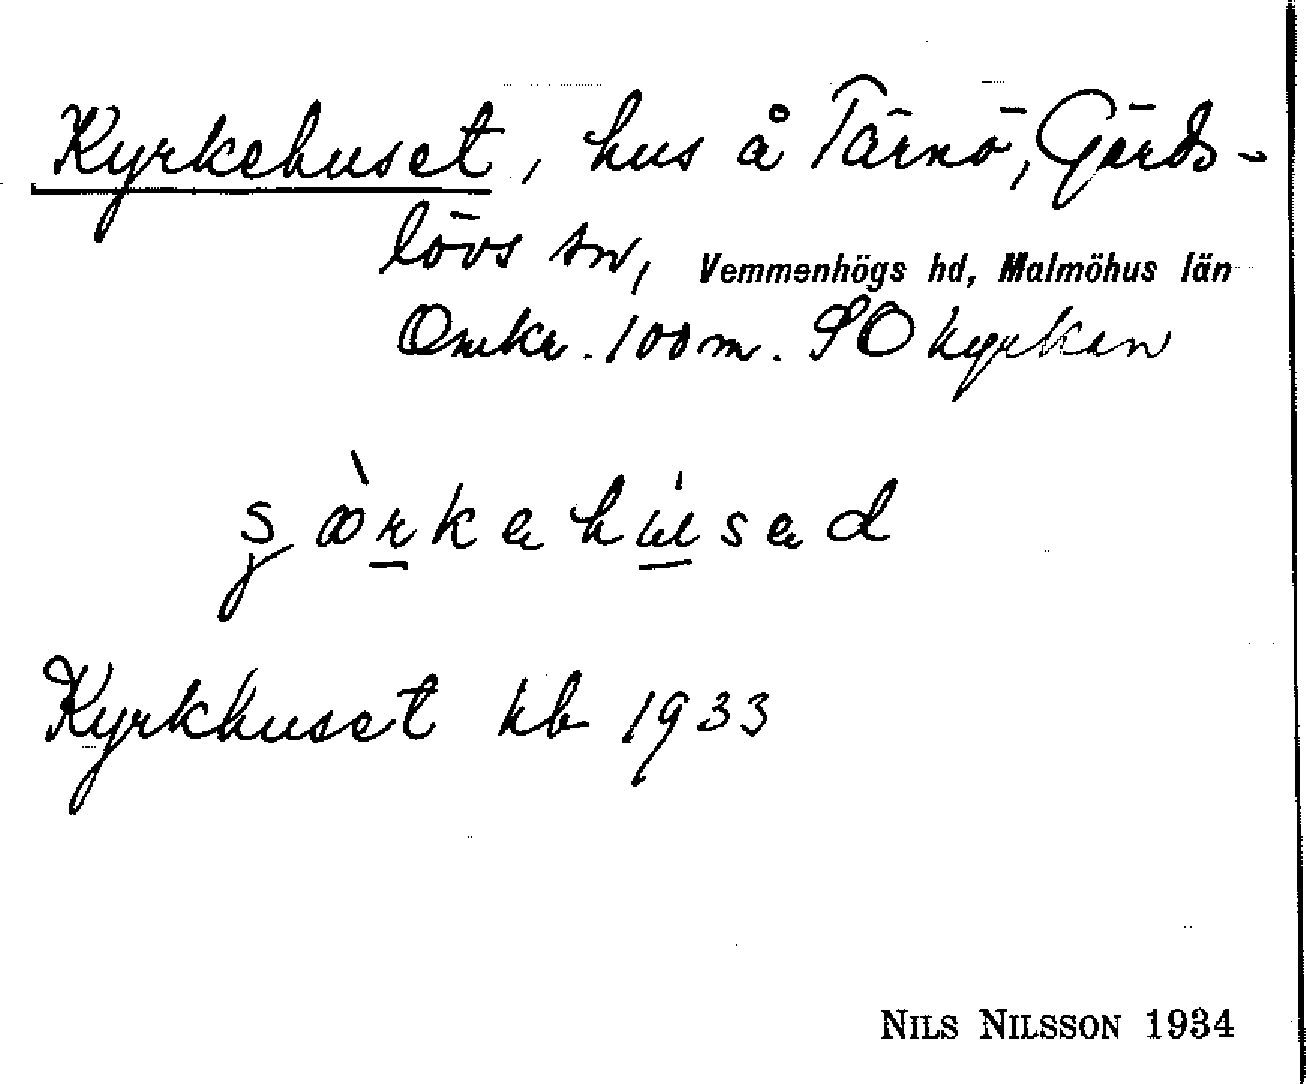 Kyrkehuset, hus å Tärnö, Gärds-
lövs sn, Vemmenhögs hd, Malmöhus län
Omkr. 100 m. SO kyrkan
Kyrkhuset kb 1933
NILS NILSSON 1934